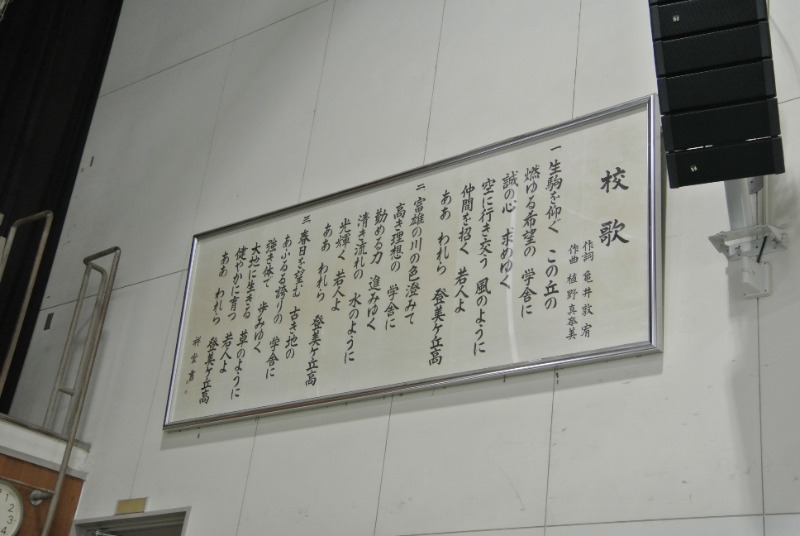 校歌
作詞 亀井敦宥
作曲 植野真奈美
一 生駒を仰ぐ この丘の
燃ゆる希望の 学舎に
誠の心 求めゆく
空に行き交う 風のように
仲間を招く 若人よ
ああ われら 登美ケ丘高
二 富雄の川の色澄みて
高き理想の 学舎に
勤める力 進みゆく
清き流れの 水のように
光輝く 若人よ
ああ われら 登美ケ丘高
三 春日を望む 古き地の
あふるる誇りの 学舎に
強き体で 歩みゆく
大地に生きる 草のように
健やかに育つ 若人よ
ああ われら 登美ケ丘高